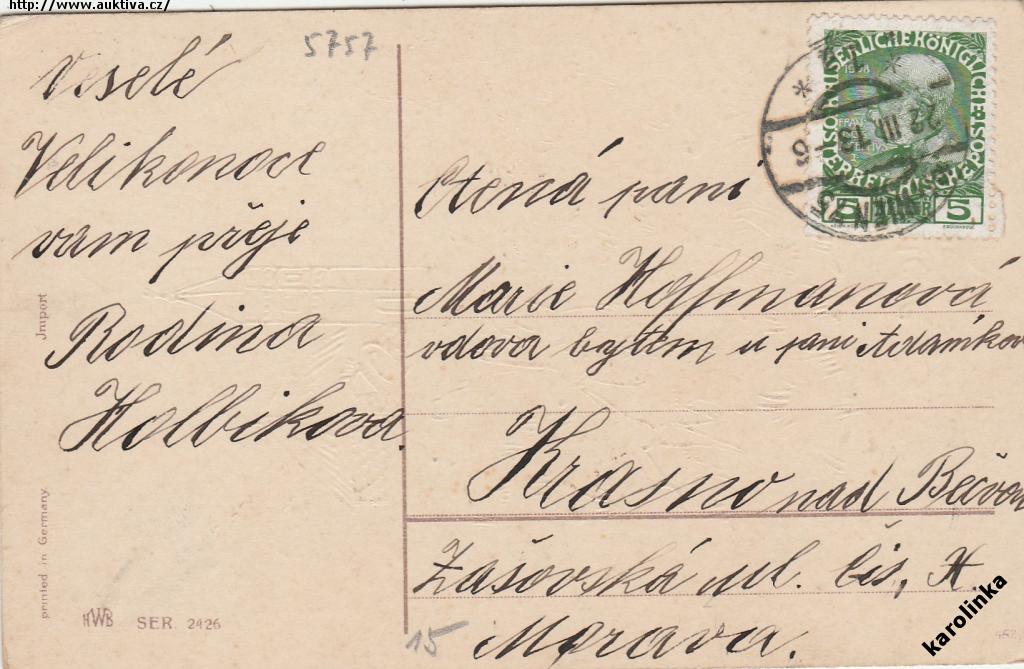 http://www.auktiva.cz/
5757
Veselé
Velikonoce
vam přeje
Rodina
Holbikova
Ctená paní
Marie Hoffmanová
vdova bytem u pani Adamkov
Krasno nad Bečvou
Zašovská ul. čis, H.
Morava.
KAISERLICHE KÖNIGLICHE
1908
5 5
WIEN
22 III 13
Import
printed in Germany
HWB SER. 2426
15
karolinka